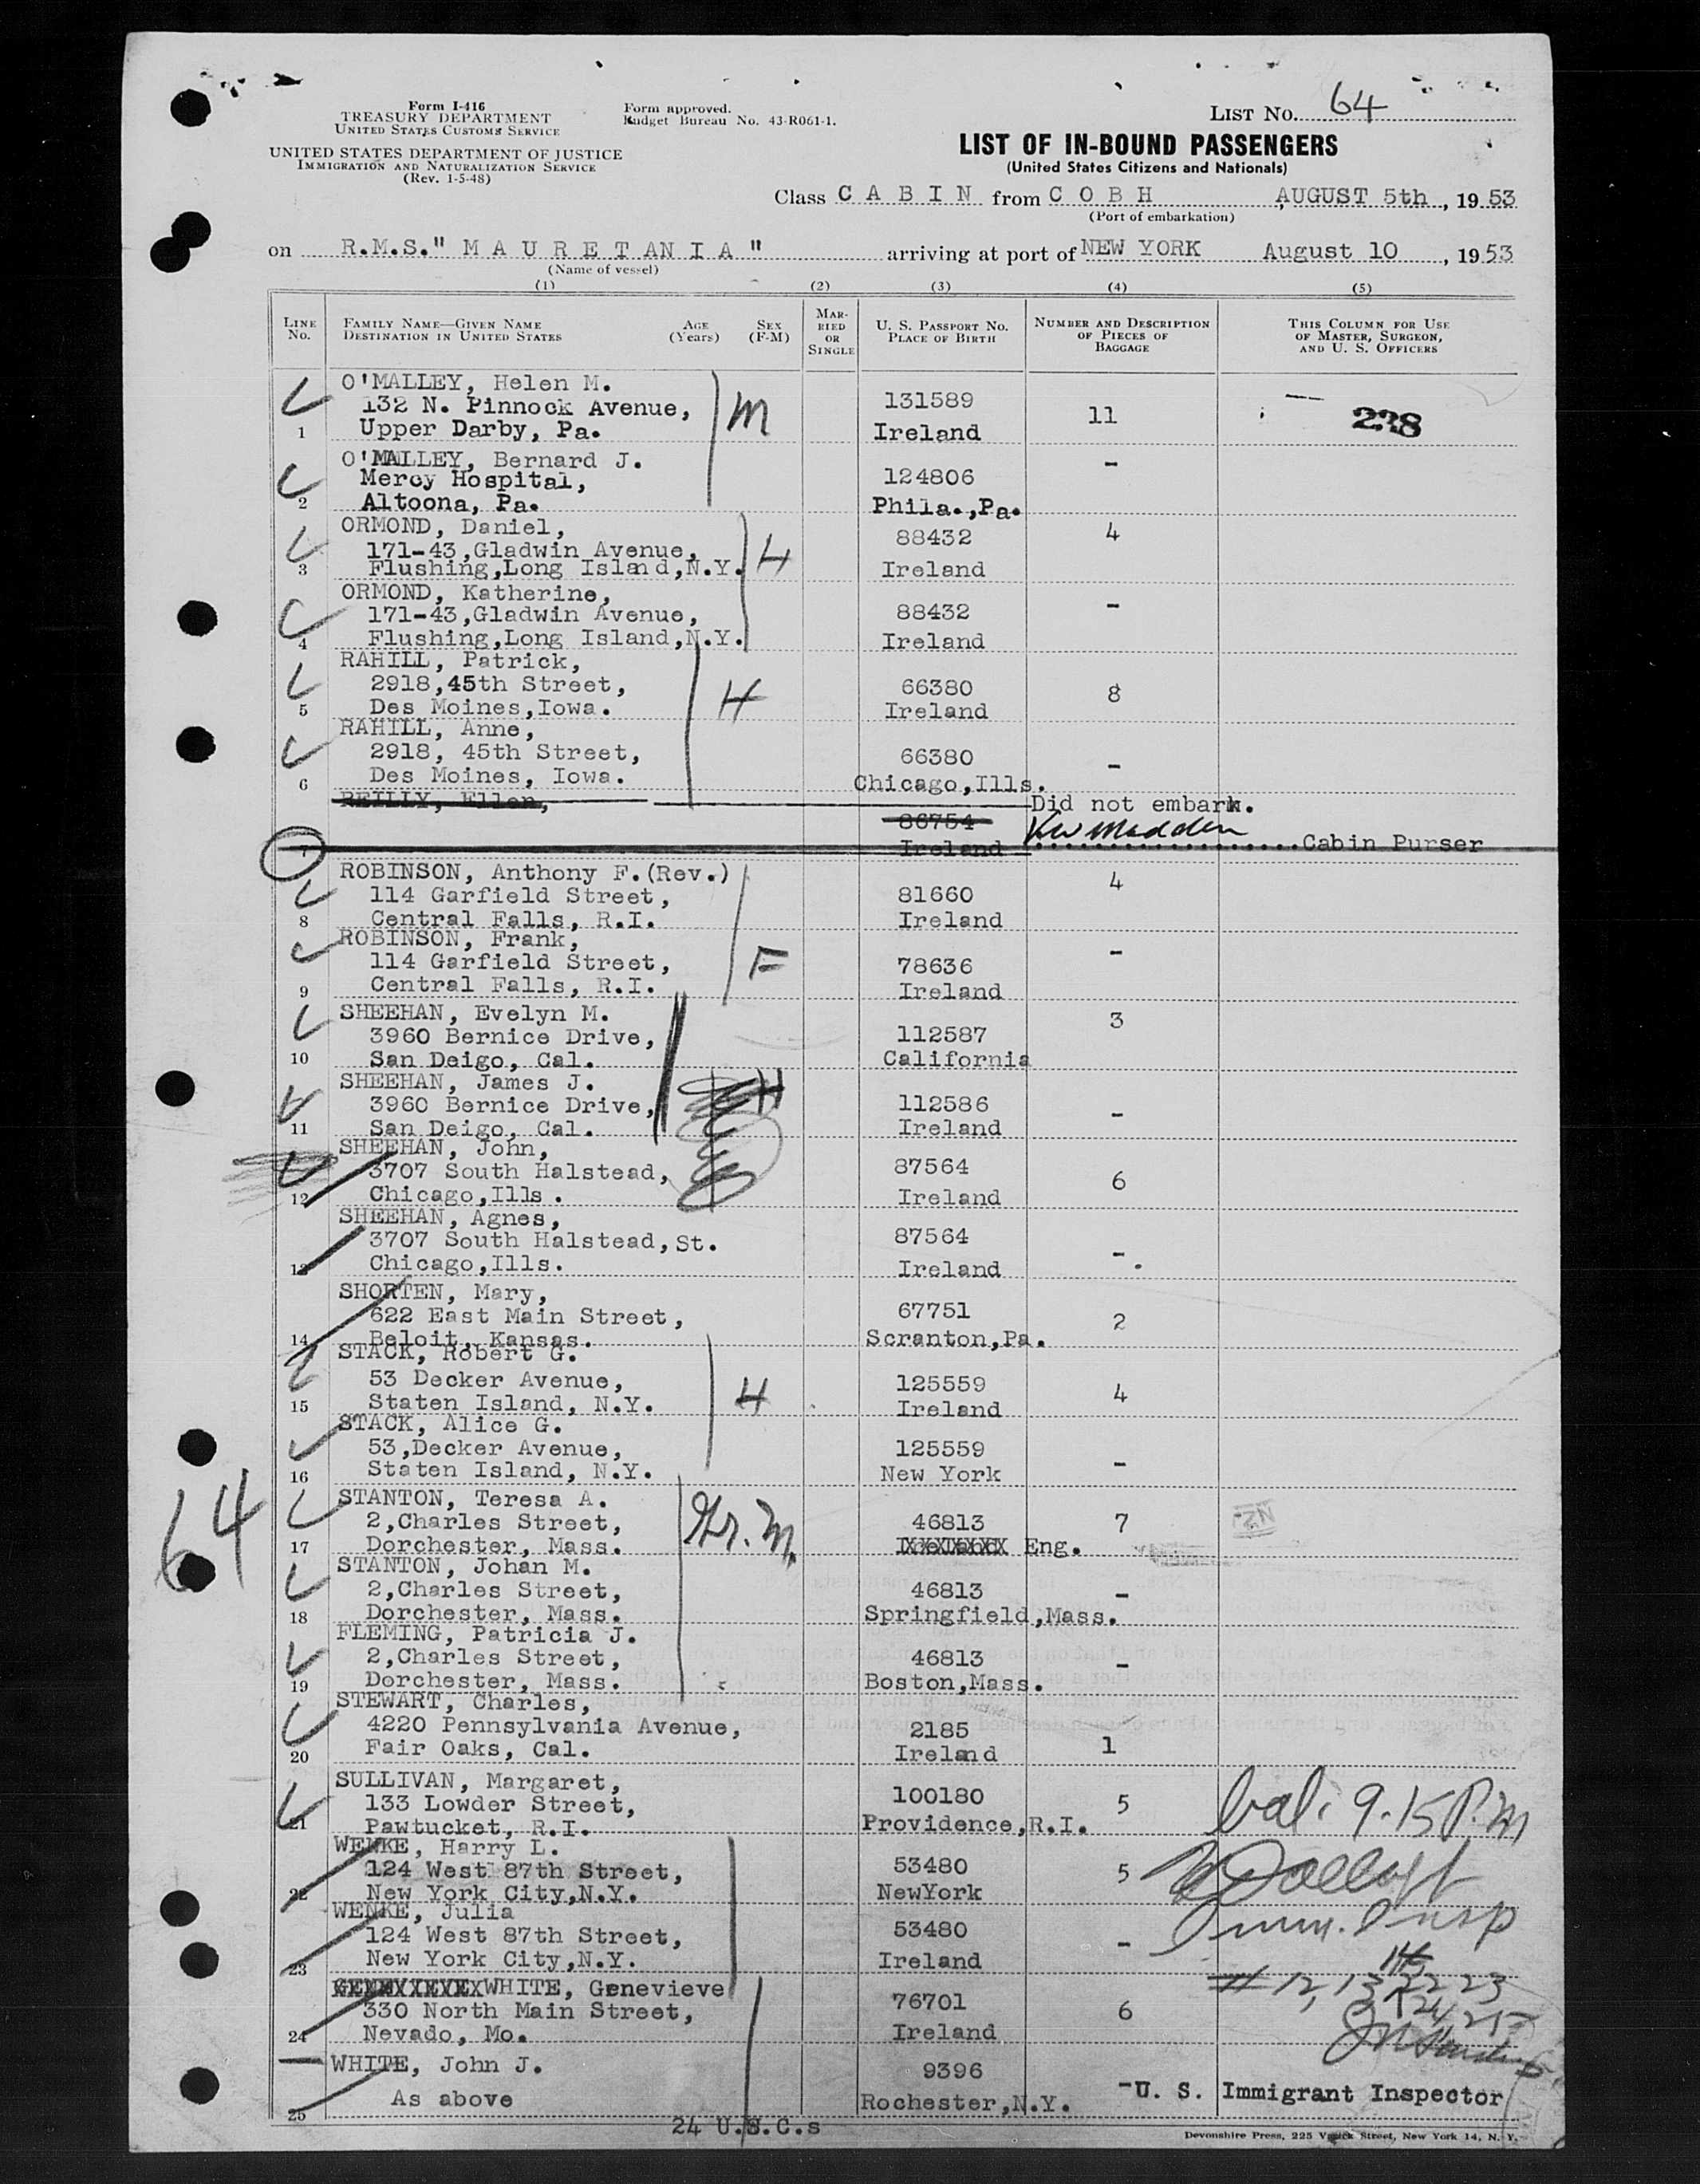 Form I-416
TREASURY DEPARTMENT
UNITED STATES CUSTOMS SERVICE
UNITED STATES DEPARTMENT OF JUSTICE
IMMIGRATION AND NATURALIZATION SERVICE
(Rev. 1-5-48)
Form approved.
Budget Bureau No. 43-R061-1.
LIST No. 64
LIST OF IN-BOUND PASSENGERS
(United States Citizens and Nationals)
Class C A B I N from C O B H AUGUST 5th, 1953
(Port of embarkation)
on R.M.S." M A U R E T A N I A " arriving at port of NEW YORK August 10, 1953
(Name of vessel)
(1) (2) (3) (4) (5)
LINE No.
FAMILY NAME—GIVEN NAME
DESTINATION IN UNITED STATES
AGE (Years)
SEX (F-M)
MARRIED OR SINGLE
U. S. PASSPORT NO.
PLACE OF BIRTH
NUMBER AND DESCRIPTION
OF PIECES OF
BAGGAGE
THIS COLUMN FOR USE
OF MASTER, SURGEON,
AND U. S. OFFICERS
O'MALLEY, Helen M.
132 N. Pinnock Avenue, M 131589 11 238
1 Upper Darby, Pa. Ireland
O'MALLEY, Bernard J. -
Mercy Hospital, 124806
2 Altoona, Pa. Phila.,Pa.
ORMOND, Daniel, 88432 4
171-43,Gladwin Avenue, H
3 Flushing,Long Island,N.Y. Ireland
ORMOND, Katherine,
171-43,Gladwin Avenue, 88432 -
4 Flushing,Long Island,N.Y. Ireland
RAHILL, Patrick,
2918,45th Street, H 66380 8
5 Des Moines,Iowa. Ireland
RAHILL, Anne,
2918, 45th Street, 66380 -
6 Des Moines, Iowa. Chicago,Ills.
REILLY, Ellen, Did not embark.
86754 KW Madden
7 Ireland ..................Cabin Purser
ROBINSON, Anthony F.(Rev.) 4
114 Garfield Street, 81660
8 Central Falls, R.I. Ireland
ROBINSON, Frank, -
114 Garfield Street, F 78636
9 Central Falls, R.I. Ireland
SHEEHAN, Evelyn M. 3
3960 Bernice Drive, 112587
10 San Deigo, Cal. California
SHEEHAN, James J. H
3960 Bernice Drive, 112586 -
11 San Deigo, Cal. Ireland
SHEEHAN, John,
3707 South Halstead, 87564 6
12 Chicago,Ills. Ireland
SHEEHAN, Agnes,
3707 South Halstead,St. 87564 -
13 Chicago,Ills. Ireland
SHORTEN, Mary,
622 East Main Street, 67751 2
14 Beloit, Kansas. Scranton,Pa.
STACK, Robert G.
53 Decker Avenue, H 125559 4
15 Staten Island, N.Y. Ireland
STACK, Alice G.
53,Decker Avenue, 125559 -
16 Staten Island, N.Y. New York
64
STANTON, Teresa A.
2,Charles Street, 46813 7
17 Dorchester, Mass. Eng.
STANTON, Johan M.
2,Charles Street, 46813 -
18 Dorchester, Mass. Springfield,Mass.
FLEMING, Patricia J.
2,Charles Street, 46813 -
19 Dorchester, Mass. Boston,Mass.
STEWART, Charles,
4220 Pennsylvania Avenue, 2185
20 Fair Oaks, Cal. Ireland 1
SULLIVAN, Margaret, 100180
133 Lowder Street, 5 bal. 9.15 P.M
21 Pawtucket, R.I. Providence,R.I.
WENKE, Harry L.
124 West 87th Street, 53480 5
22 New York City,N.Y. NewYork
WENKE, Julia Imm. Insp
124 West 87th Street, 53480 -
23 New York City,N.Y. Ireland
GENEVIEVE WHITE, Genevieve # 12, 13 22 23
330 North Main Street, 76701 6 24 25
24 Nevado, Mo. Ireland
WHITE, John J. 9396
As above -U. S. Immigrant Inspector
25 Rochester,N.Y.
24 U.S.C.s
Devonshire Press, 225 Varick Street, New York 14, N. Y.